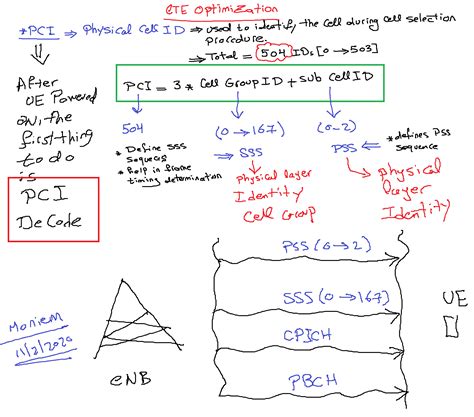 LTE Optimization
*PCI ⇒ Physical Cell ID ⇒ used to identify, the cell during cell selection
procedure.
→ Total = 504 IDs [0 → 503]
After
UE Powered
on, the
first-thing
to do
is
PCI
DeCode
PCI = 3 * Cell Group ID + Sub Cell ID
504
* Define SSS
Sequences
* help in frame
timing determination
(0 → 167)
SSS
physical layer
Identity
Cell Group
(0-2)
PSS
* defines PSS
Sequence
physical
layer
Identity
PSS (0 → 2)
SSS (0 → 167)
CPICH
PBCH
eNB
UE
Moniem
11/2/2020